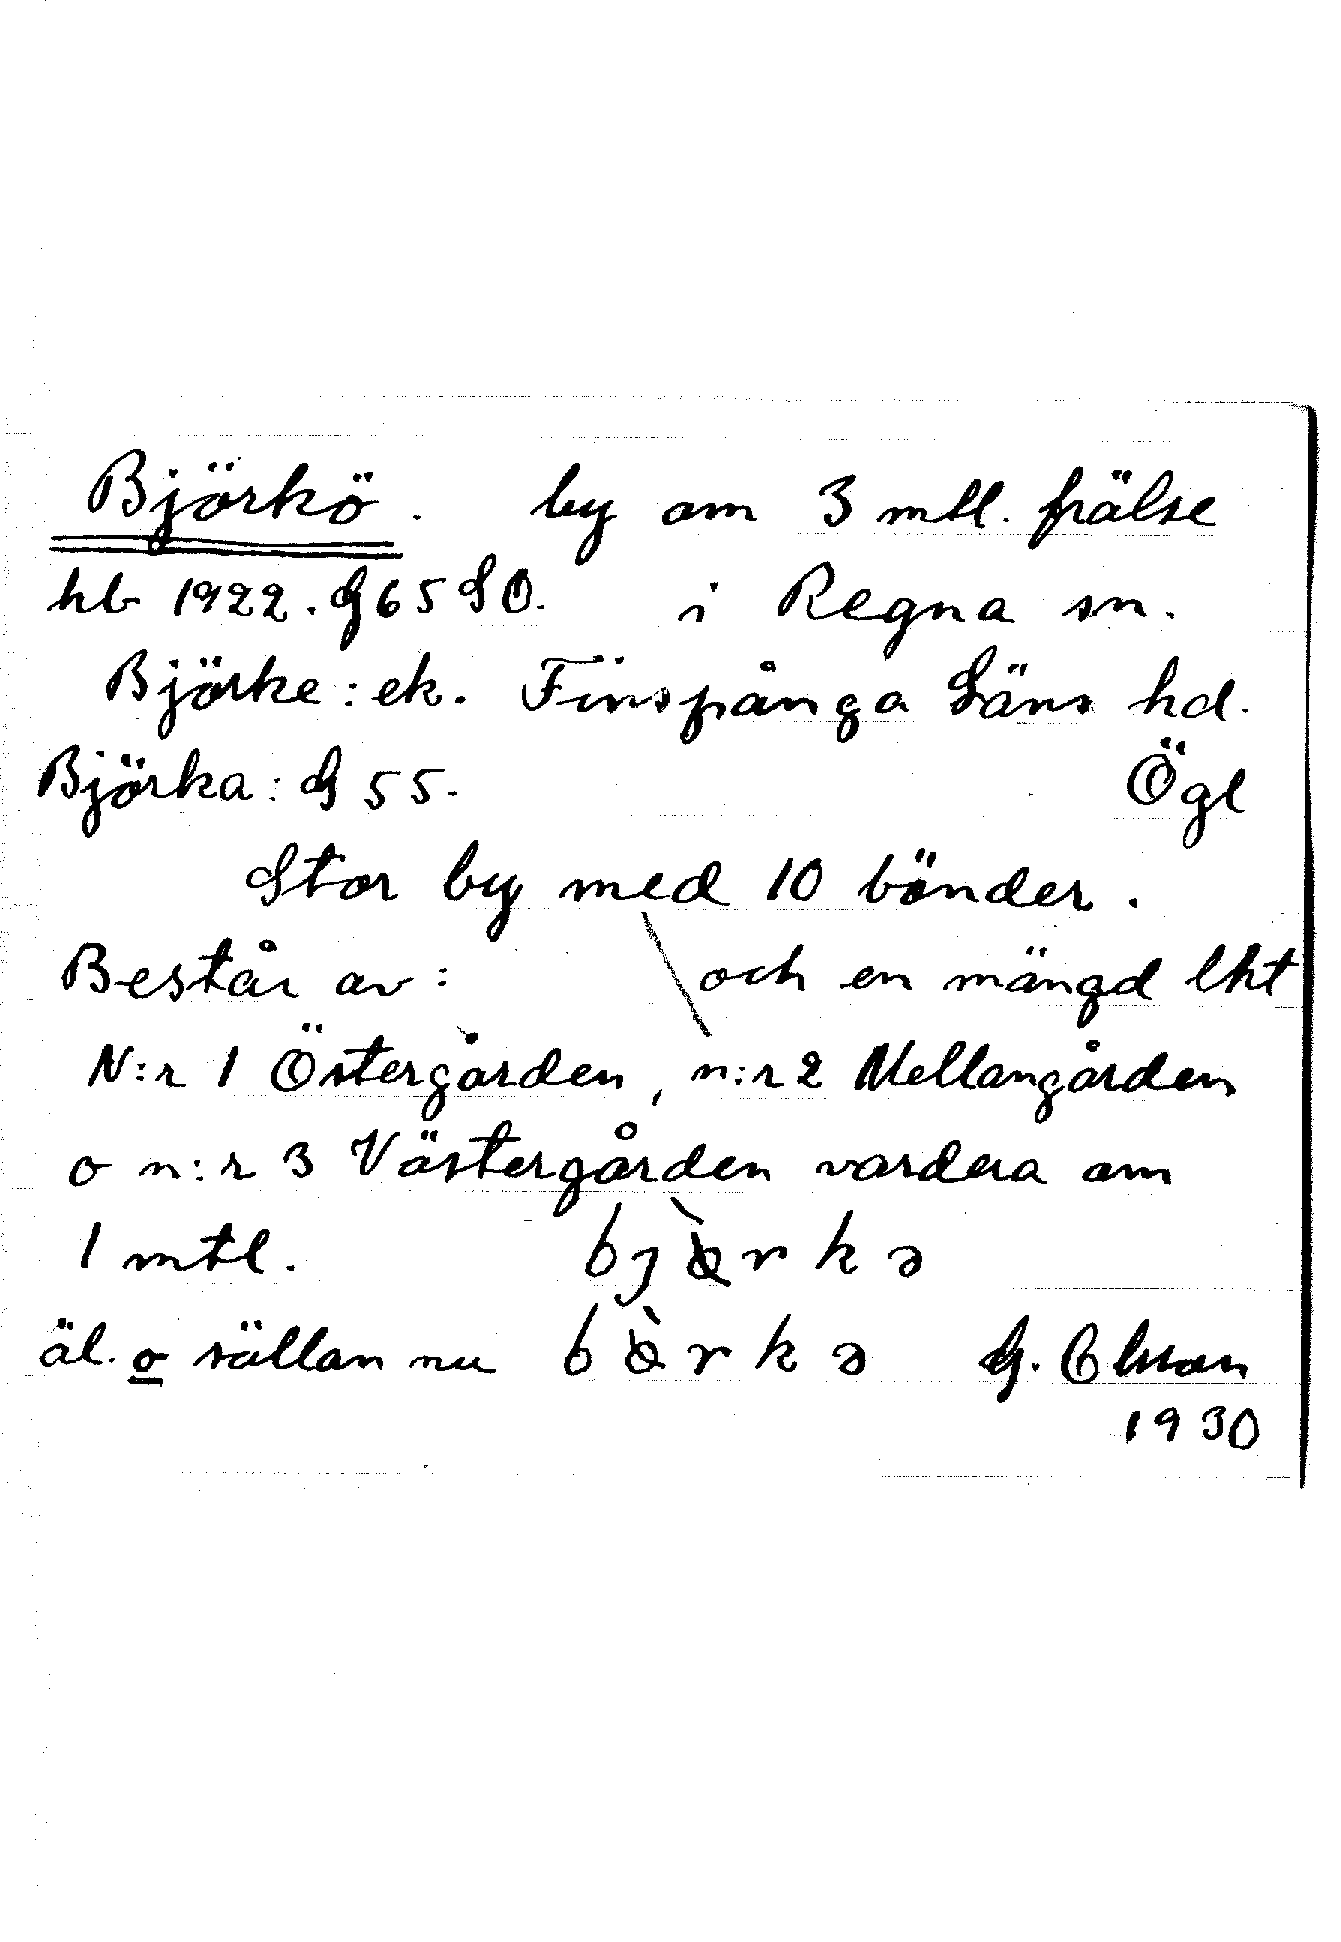 Björkö. by om 3 mtl. frälse
hb 1922. G65 SO. i Regna sn.
Björke: ek. Finspånga Läns hd.
Björka: G 55. Ögl
Stor by med 10 bönder.
Består av: och en mängd lht
N:r 1 Östergården, n:r 2 Mellangården
o n:r 3 Västergården vardera om
1 mtl. bjo᷆rkə
äl. o sällan nu bɵ̀rkə G. Olsson
1930